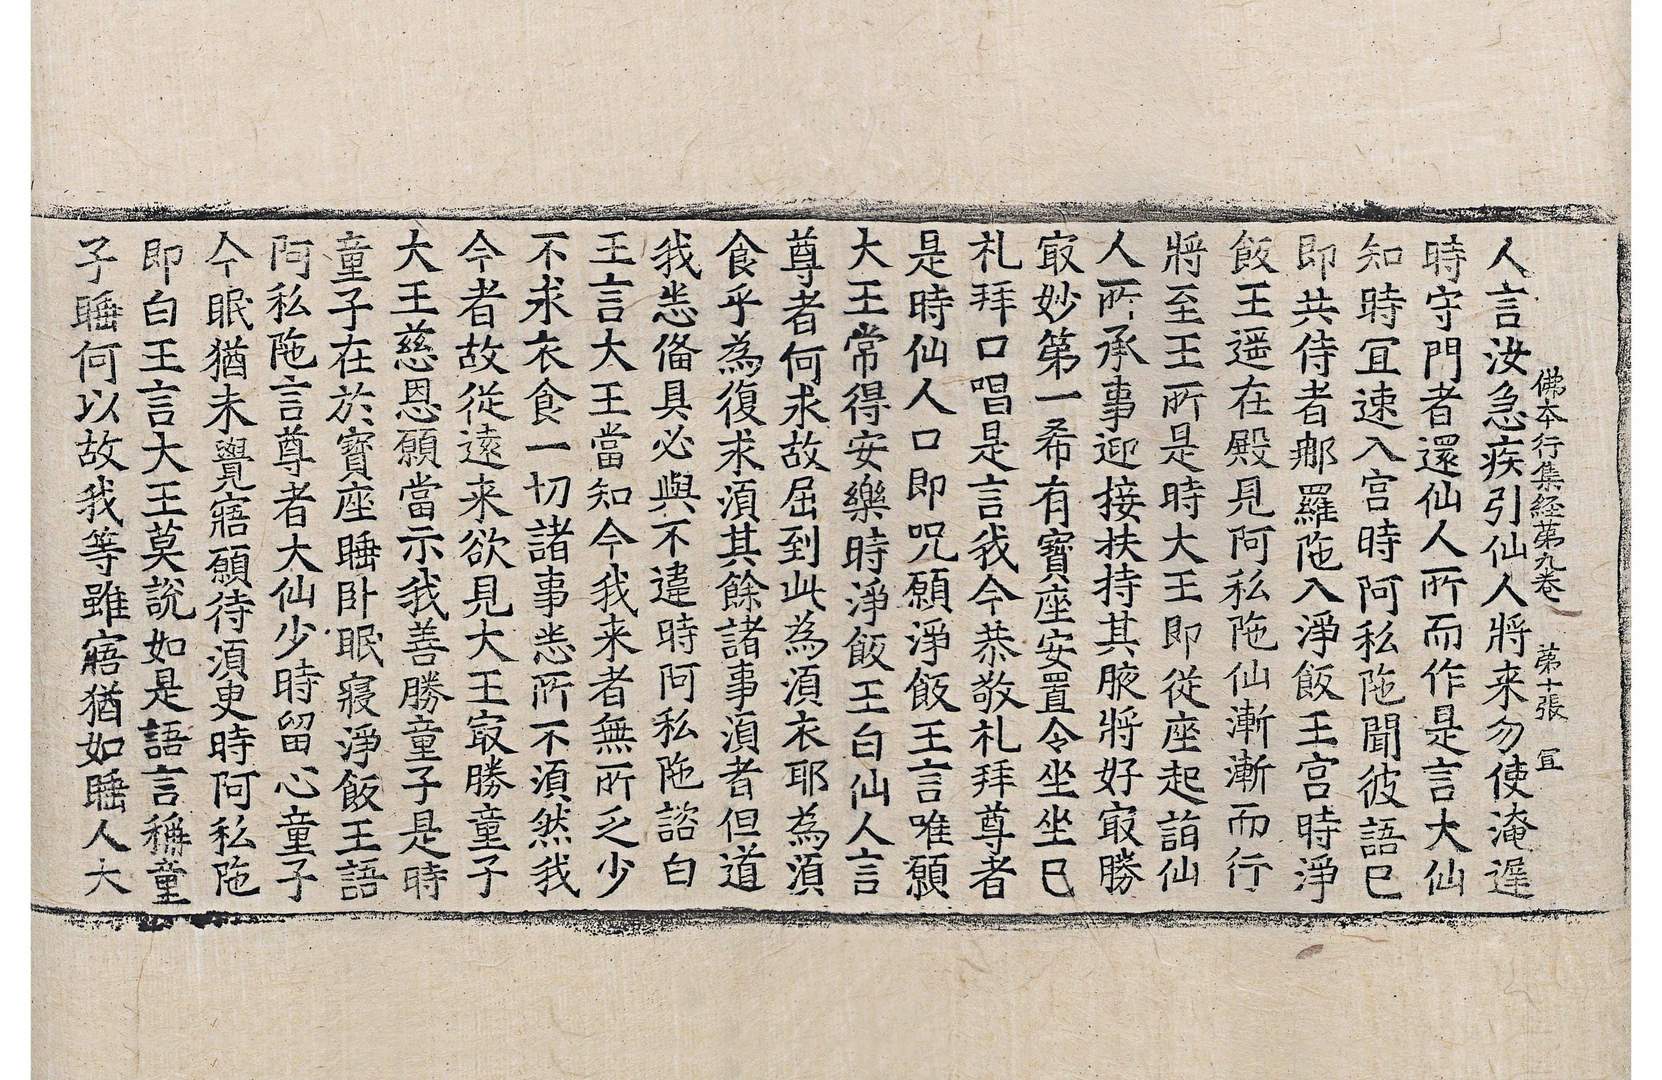 佛本行集経第九卷 第十張 冝
人言汝急疾引仙人將来勿使淹遲
時守門者還仙人所而作是言大仙
知時冝速入宫時阿私陁聞彼語巳
即共侍者那羅陁入淨飯王宫時淨
飯王遥在殿見阿私陁仙漸漸而行
將至王所是時大王即從座起詣仙
人所承事迎接扶持其腋將好㝡勝
㝡妙第一希有寳座安置令坐坐巳
礼拜口唱是言我今恭敬礼拜尊者
是時仙人口即呪願淨飯王言唯願
大王常得安樂時淨飯王白仙人言
尊者何求故屈到此為湏衣耶為湏
食乎為復求湏其餘諸事湏者但道
我悉俻具必與不違時阿私陁諮白
王言大王當知今我来者無所乏少
不求衣食一切諸事悉所不湏然我
今者故從遠来欲見大王㝡勝童子
大王慈恩願當示我善勝童子是時
童子在於寳座睡卧眠寢淨飯王語
阿私陁言尊者大仙少時留心童子
今眠猶未覺寤願待湏㬰時阿私陁
即白王言大王莫說如是語言稱童
子睡何以故我等雖寤猶如睡人大